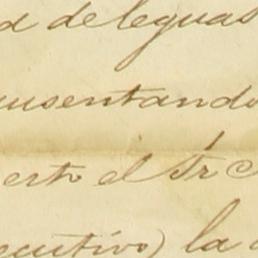 d de leguas
usentando
erto el Sr
ecutivo) la